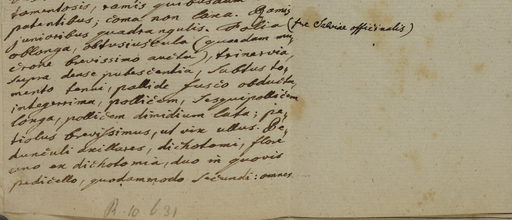 tomentosis, ramis quibusdam
patentibus, coma non laxa. Ramis
junioribus quadrangulis. Folia (fre Salviae officinalis)
oblonga, obtusiuscula (quaedam mu
crone brevissimo aucta), trinervia,
supra dense pubescentia, subtus to,
mento tenui, pallide fusco obducta,
integerrima, pollicem, sesquipollicem
longa, pollicem dimidium lata; pe,
tiolus brevissimus, ut vix ullus. Pe,
dunculi axillares, dichotomi, flore
uno ex dichotomia, duo in quovis
pedicello, quodammodo secundi: omnes
R. 10 b 31